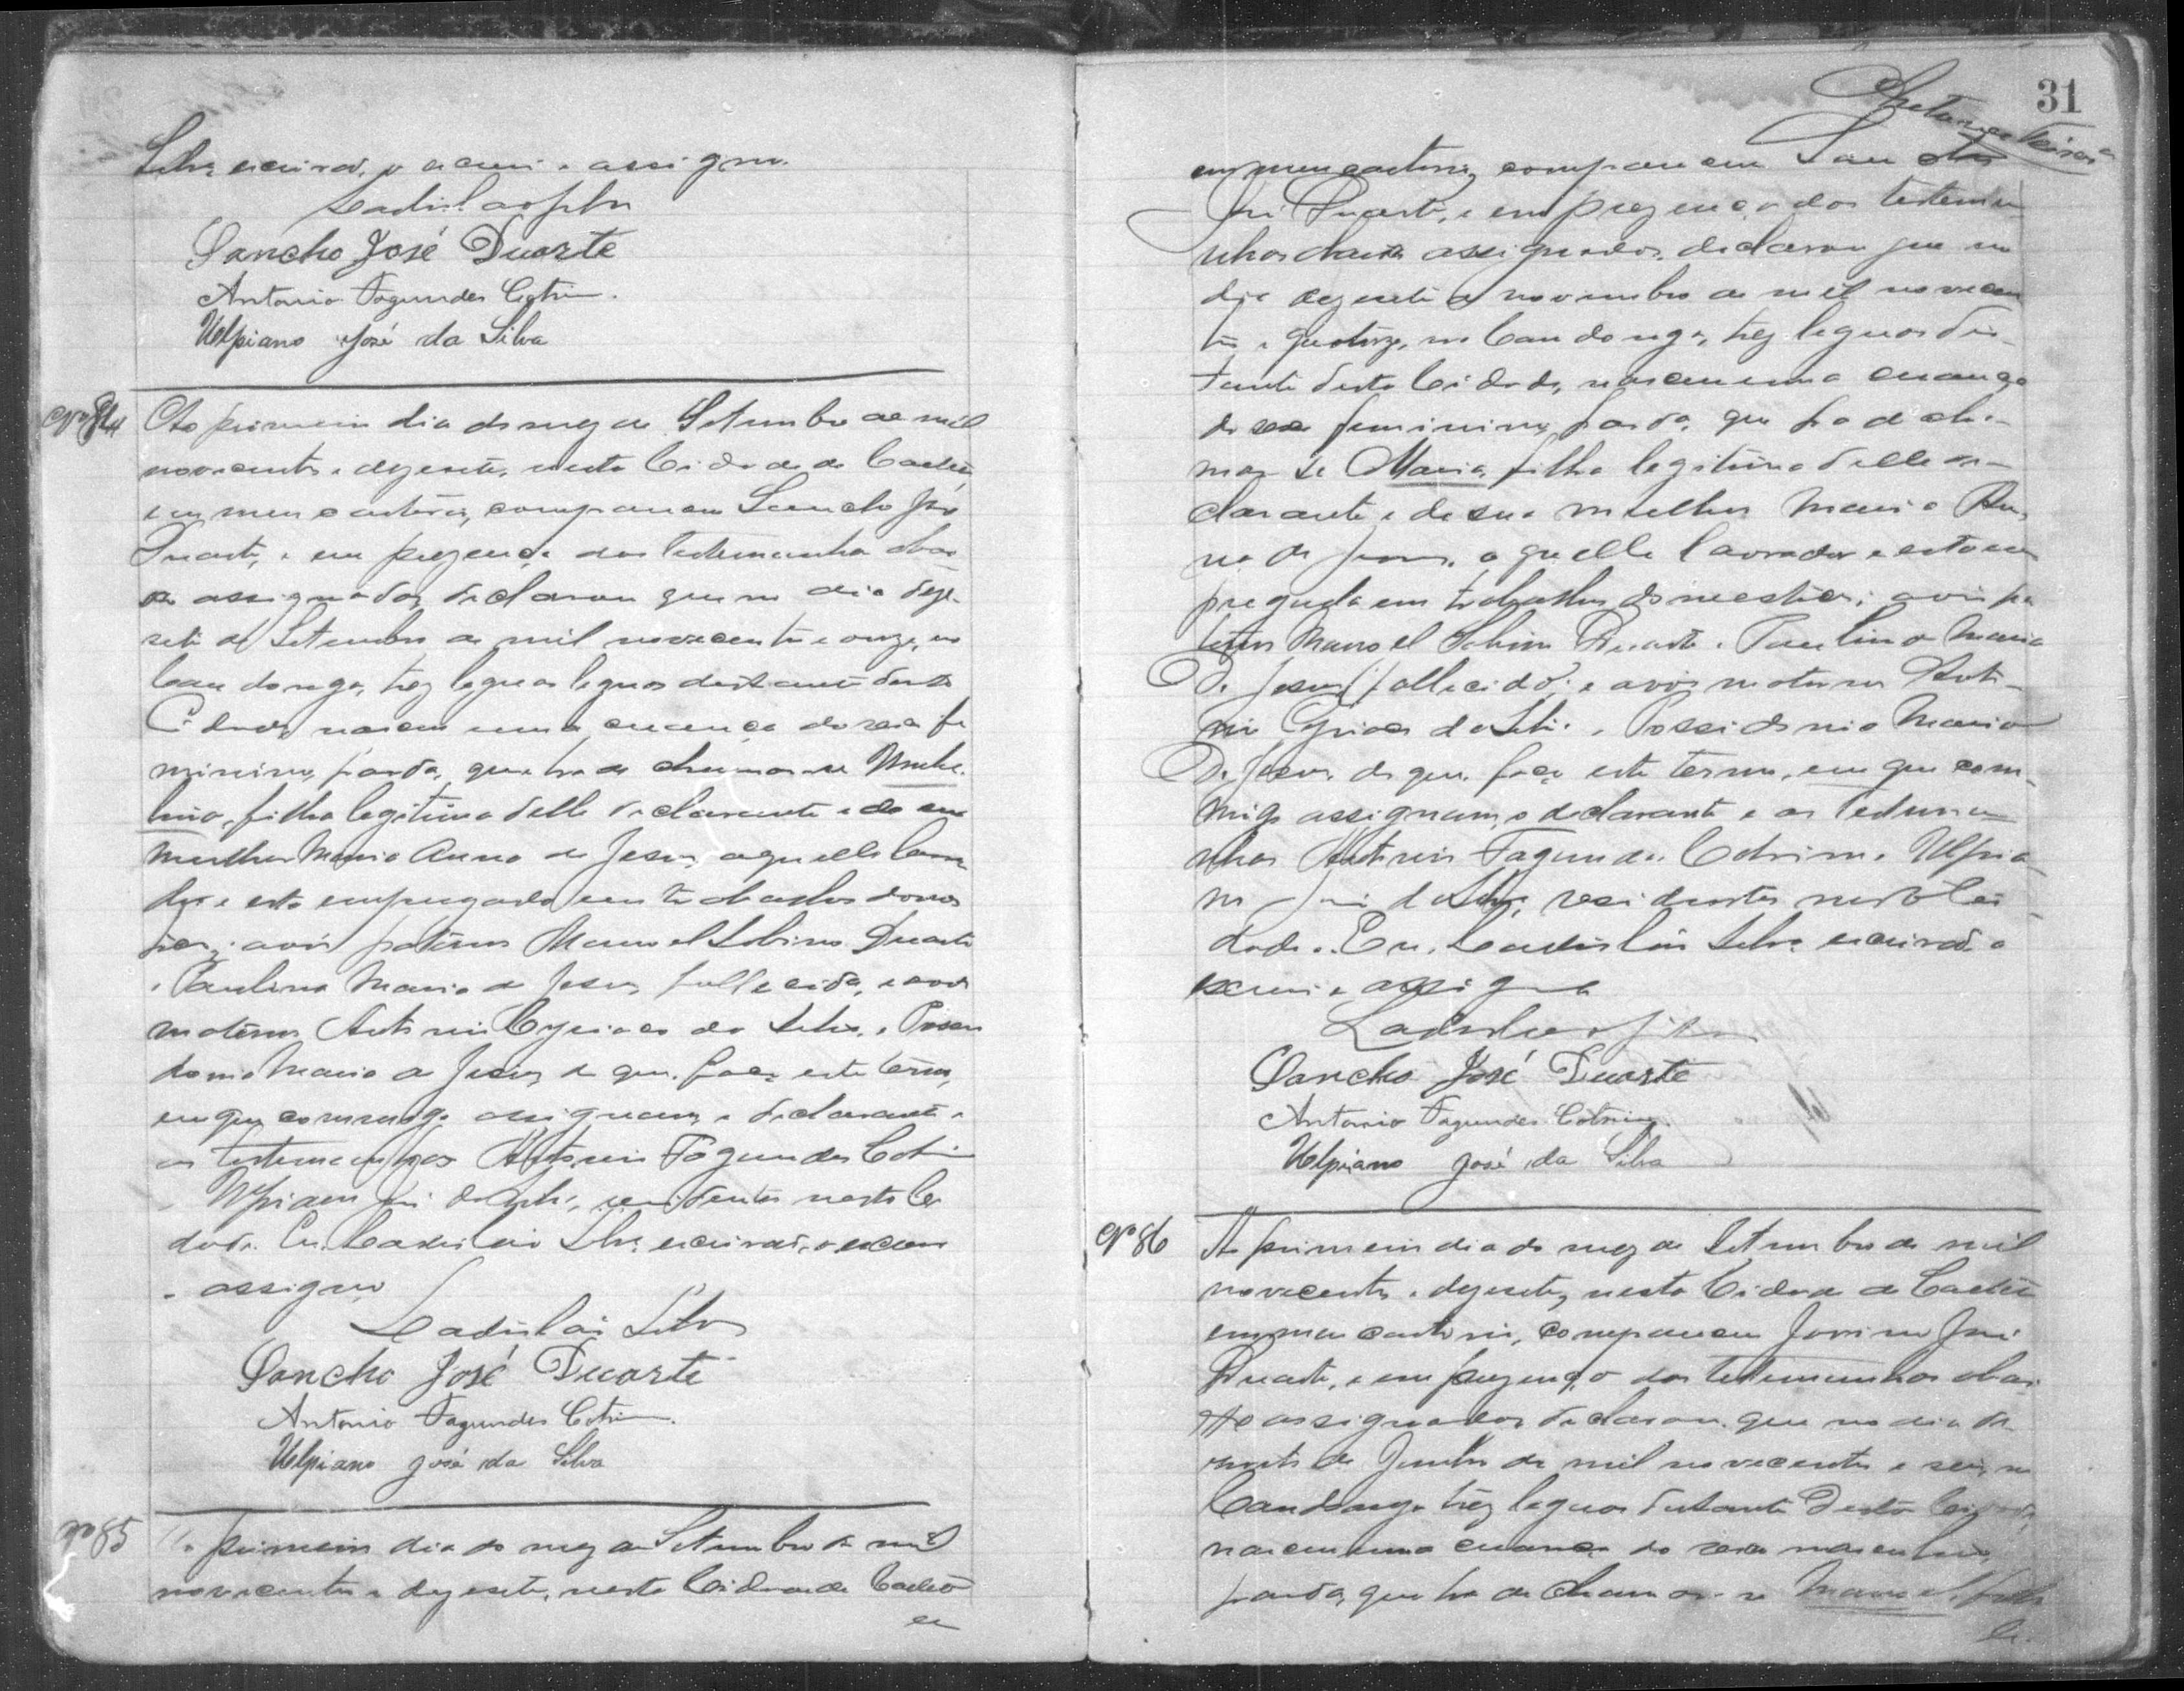 Silva escrivão, o escrevi e assigno.
Ladislao Silva
Sancho José Duarte
Antonio Fagundes Cotrim.
Ulpiano José da Silva
Nº 84
Ao primeiro dia do mez de Setembro de mil
novecentos e dezesete, nesta Cidade de Caeteté
em meu cartorio, compareceu Sancho José
Duarte, e em prezença das testemunhas abai
xo assignadas, declarou que no dia deze-
sete de Setembro de mil novecentos e onze, no
Candonga, trez leguas leguas distante desta
Cidade, nasceu uma creança do sexo fe
minino, parda, que ha de chamar-se Umbe-
lina, filha legitima delle declarante e de sua
mulher Maria Anna de Jesus, aquelle lavra
dor e esta empregada em trabalhos domes
ticos; avós paternos Manoel Sabino Duarte
e Paulina Maria de Jesus, fallecida, e avós
maternos Antonio Cyriaco da Silva, e Possi
donia Maria de Jesus, de que faço este termo,
em que commigo assignam, o declarante e
as testemunhas Antonio Fagundes Cotrim
e Ulpiano José da Silva, residentes nesta Ci
dade. Eu, Ladisláo Silva, escrivão, o escrevi
e assigno
Ladislái Silva
Sancho José Duarte
Antonio Fagundes Cotrim.
Ulpiano José da Silva
Nº 85
Ao primeiro dia do mez de Setembro de mil
novecentos e dezesete, nesta Cidade de Caeteté
em
31
em meu cartorio, compareceu Sancho
José Duarte, e em prezença das testemu
nhas abaixo assignadas, declarou que no
dia dezesete de novembro de mil novecen
tos e quatorze, no Candonga, trez leguas dis-
tante desta Cidade, nasceu uma creança
do sexo feminino, parda, que ha de cha-
mar-se Maria, filha legitima delle de-
clarante e de sua mulher Maria An
na de Jesus, aquelle lavrador e esta em
pregada em trabalhos domesticos; avós pa
ternos Manoel Sabino Duarte e Paulina Maria
De Jesus, fallecida; e avós maternos Anto-
nio Cyriaco da Silva e Possidonia Maria
De Jesus, de que faço este termo, em que com-
migo assignam, o declarante e as testemu
nhas Antonio Fagundes Cotrim e Ulpia
no José da Silva, residentes nesta Ci-
dade. Eu, Ladisláo Silva escrivão o
escrevi e assigno
Ladislao Silva
Sancho José Duarte
Antonio Fagundes Cotrim.
Ulpiano José da Silva
Nº 86
Ao primeiro dia do mez de Setembro de mil
novecentos e dezesete, nesta Cidade de Caeteté
em meu cartorio, compareceu Jovino José
Duarte, e em prezença das testemunhas abai
xo assignadas, declarou que no dia de
de Junho de mil novecentos e seis, no
Candonga trez leguas distante desta Cidade,
nasceu uma creança do sexo masculino,
parda, que ha de chamar-se Manoel, filho